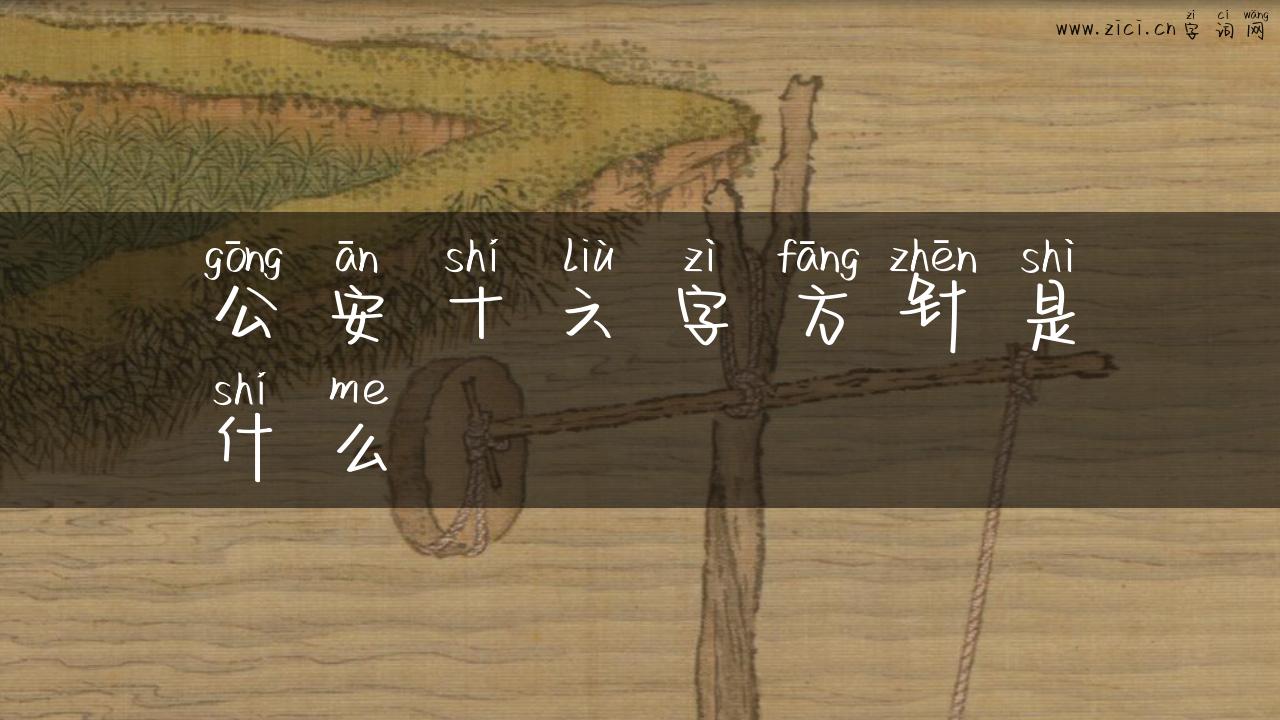 zì cí wǎng
www.zici.cn字词网
gōng ān shí liù zì fāng zhēn shì
公安十六字方针是
shí me
什么